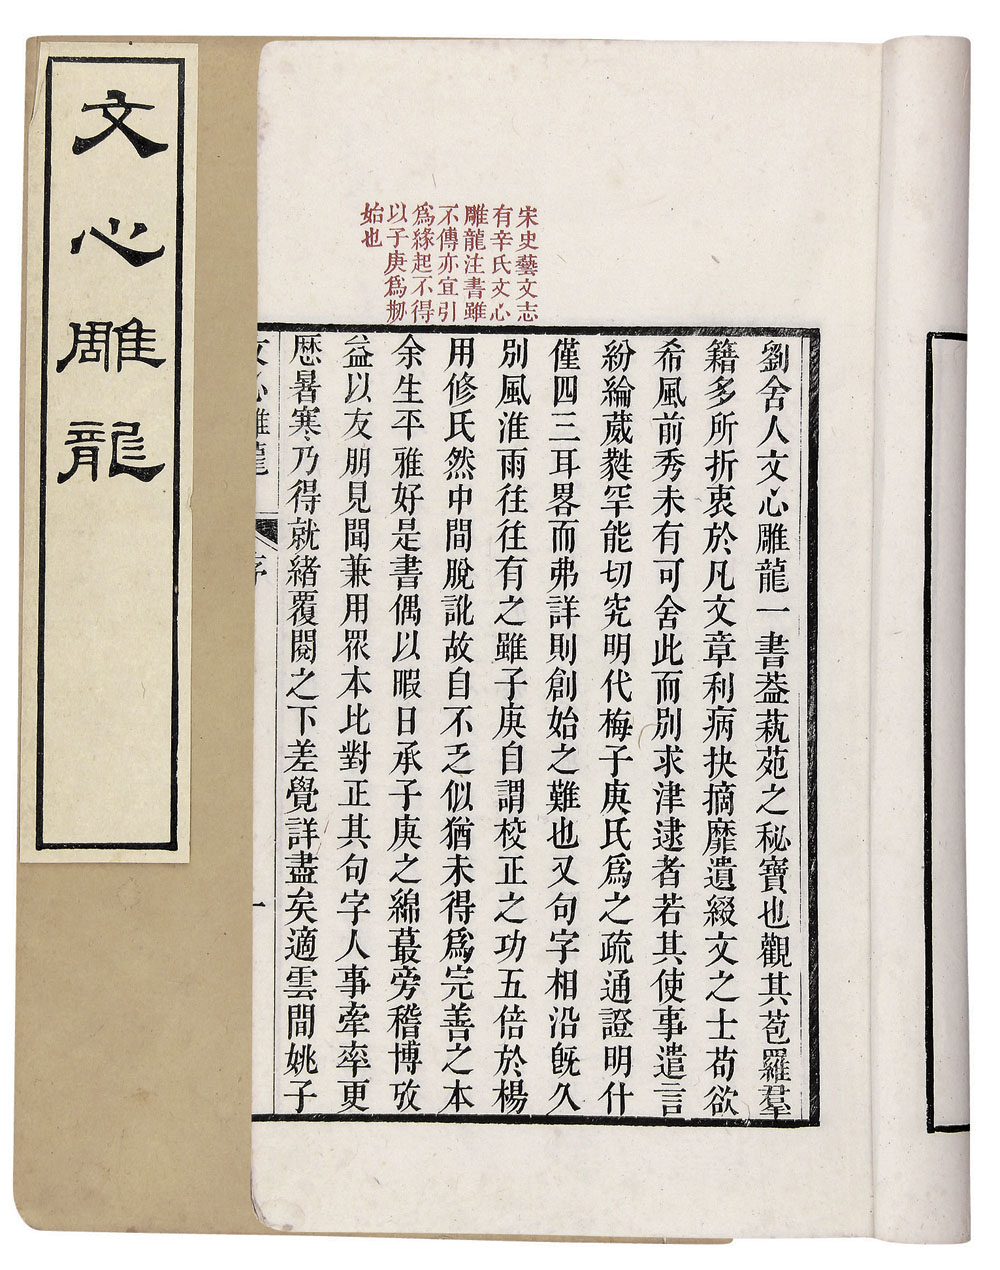 文心雕龍
宋史藝文志
有辛氏文心
雕龍注書雖
不傳亦宜引
為緣起不得
以子庚為剙
始也
劉舍人文心雕龍一書葢蓺苑之秘寶也觀其苞羅羣
籍多所折衷於凡文章利病抉摘靡遺綴文之士苟欲
希風前秀未有可舍此而別求津逮者若其使事遣言
紛綸葳蕤罕能切究明代梅子庚氏爲之疏通證明什
僅四三耳畧而弗詳則創始之難也又句字相沿旣久
別風淮雨往往有之雖子庚自謂校正之功五倍於楊
用修氏然中間脫訛故自不乏似猶未得爲完善之本
余生平雅好是書偶以暇日承子庚之綿蕞旁稽博攷
益以友朋見聞兼用眾本比對正其句字人事牽率更
歷暑寒乃得就緒覆閱之下差覺詳盡矣適雲間姚子
文心雕龍 序 一